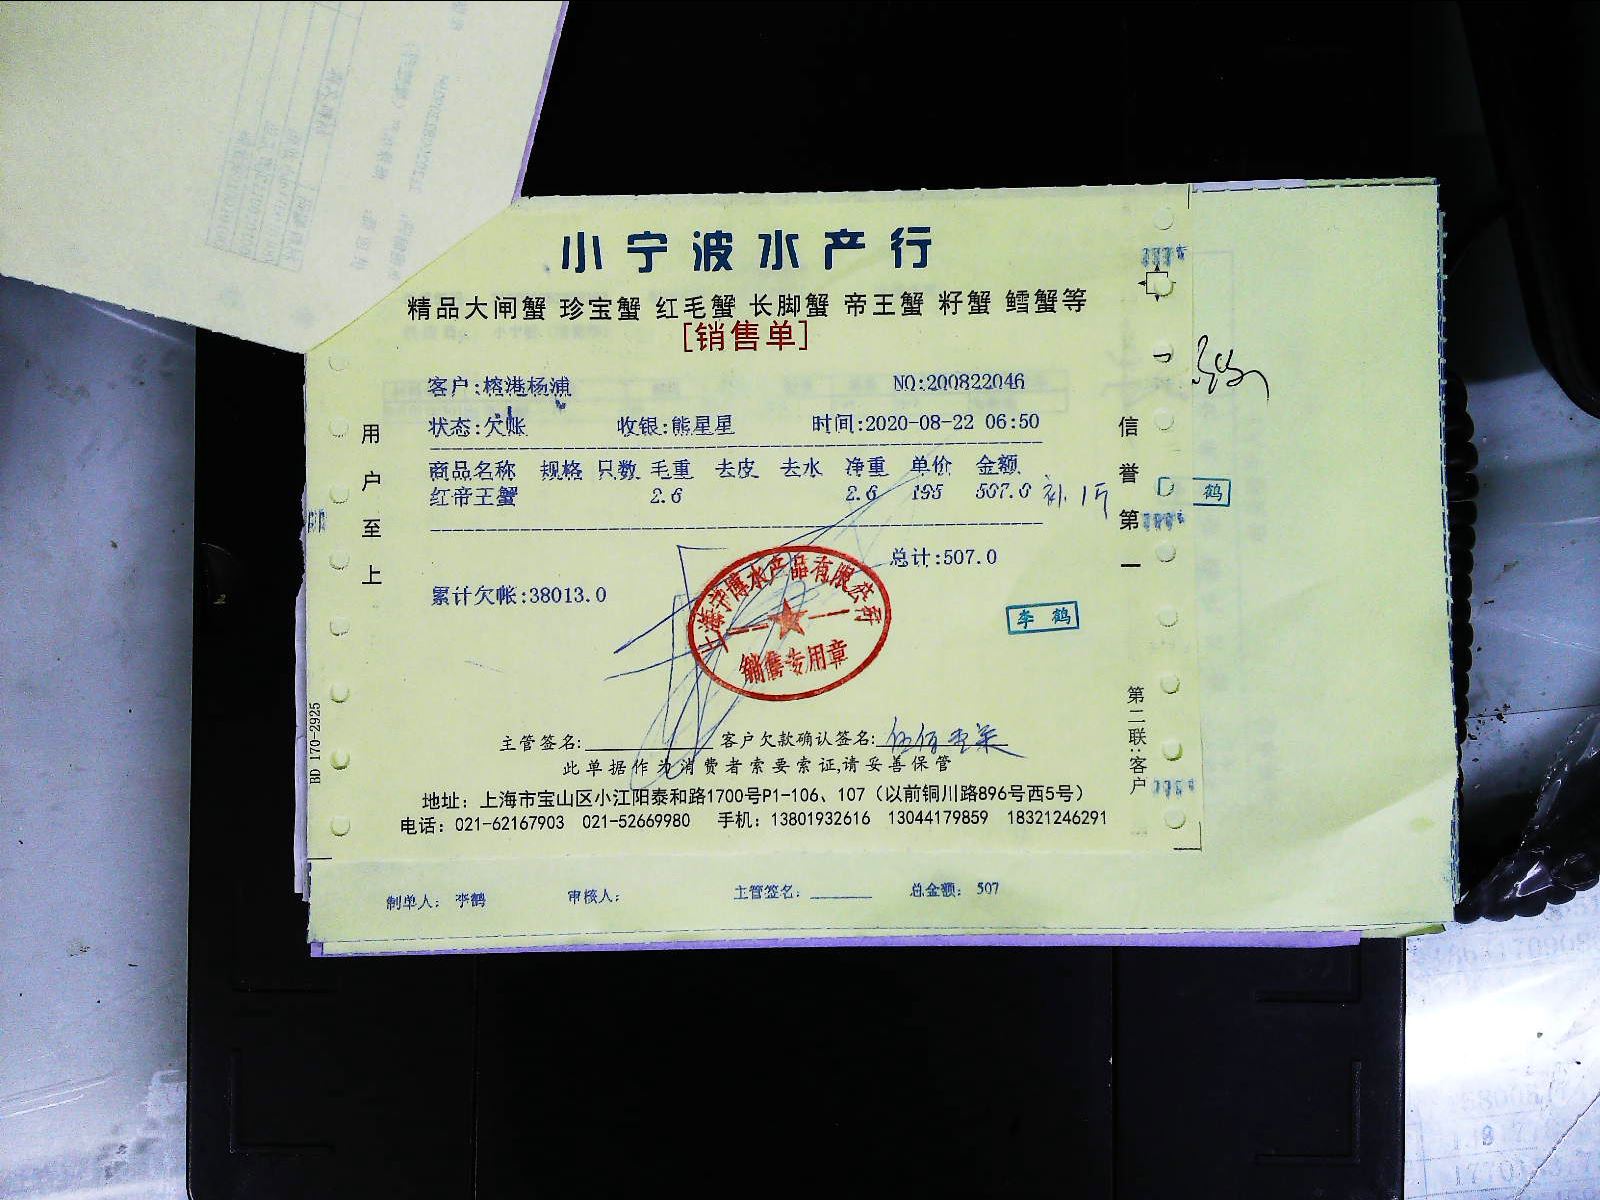 小宁波水产行
精品大闸蟹 珍宝蟹 红毛蟹 长脚蟹 帝王蟹 籽蟹 鳕蟹等
[销售单]
客户:榕港杨浦 NO:200822046
状态:欠账 收银:熊星星 时间:2020-08-22 06:50
商品名称 规格 只数 毛重 去皮 去水 净重 单价 金额
红帝王蟹 2.6 2.6 195 507.0 补1斤
总计:507.0
累计欠帐:38013.0
用户至上
信誉第一
鹤
李鹤
销售专用章
BD 170-2925
第二联:客户
主管签名: 客户欠款确认签名:
此单据作为消费者索要索证,请妥善保管
地址：上海市宝山区小江阳泰和路1700号P1-106、107（以前铜川路896号西5号）
电话：021-62167903 021-52669980 手机：13801932616 13044179859 18321246291
制单人：李鹤 审核人： 主管签名： 总金额：507